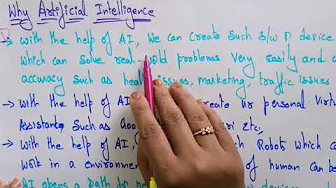 Why Artificial Intelligence
→ with the help of AI, we can create such s/w or device
which can solve real-world problems very easily and
accuracy such as health issues, marketing, traffic issues
→ with the help of AI, create ur personal virt
Assistant, such as Goo
→ with the help of AI, which Robot which ca
work in a environment of human can b
AI opens a path to